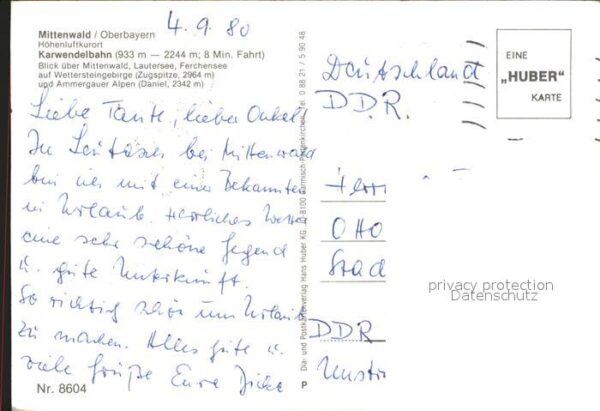 4.9.80
Mittenwald / Oberbayern
Höhenluftkurort
Karwendelbahn (933 m — 2244 m; 8 Min. Fahrt)
Blick über Mittenwald, Lautersee, Ferchensee
auf Wettersteingebirge (Zugspitze, 2964 m)
und Ammergauer Alpen (Daniel, 2342 m)
Liebe Tante, lieber Onkel
In Leutasch bei Mittenwald
bin ich mit einer Bekannten
in Urlaub. Herrliches Wetter
eine sehr schöne Gegend
u. gute Unterkunft.
So richtig schön um Urlaub
zu machen. Alles gute u.
viele Grüße Eure
Nr. 8604
Dia- und Postkartenverlag Hans Huber KG, D-8100 Garmisch-Partenkirchen, Tel. 0 88 21 / 5 90 48
P
EINE
„HUBER"
KARTE
Deutschland
DDR.
Herrn
Otto
Stad
DDR
Unstr
privacy protection
Datenschutz